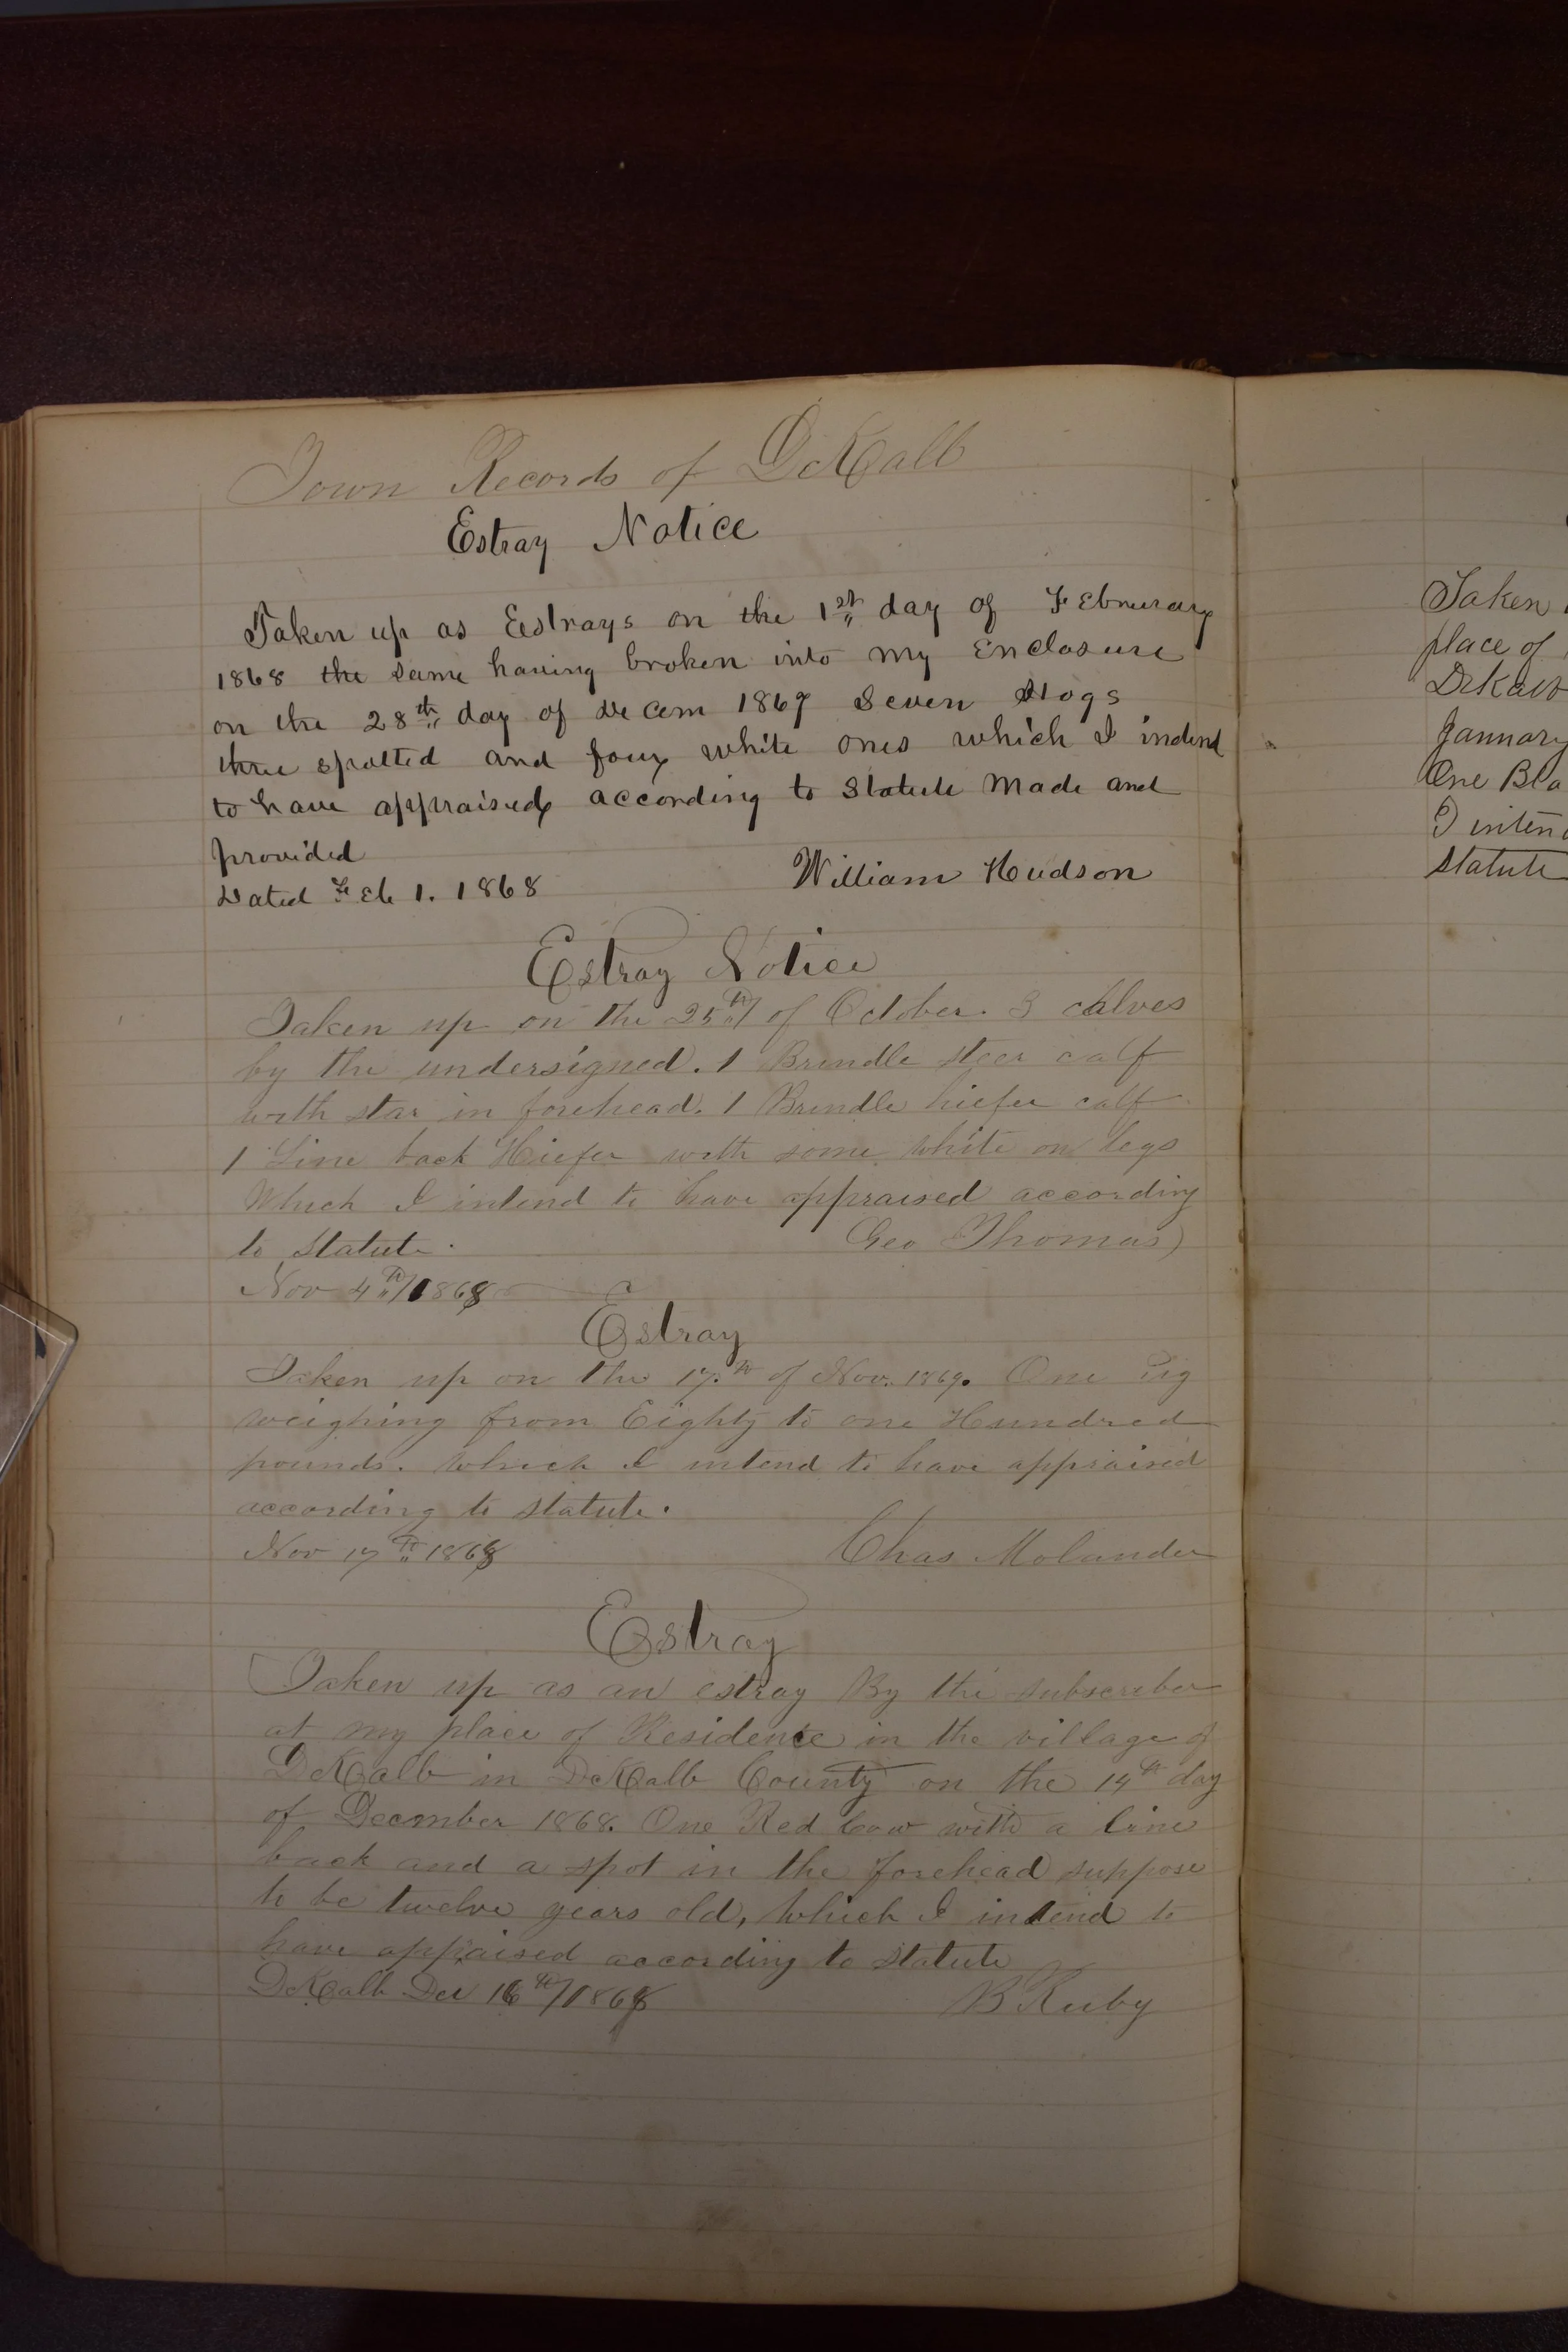 Town Records of DeKalb
Estray Notice
Taken up as Estrays on the 1st day of Februrary
1868 the same having broken into my Enclosure
on the 28th day of Decem 1867 Seven Hogs
three spotted and four white ones which I indend
to have appraised according to Statute Made and
provided
Dated Feb 1. 1868
William Hudson
Estray Notice
Taken up on the 25th of October. 3 calves
by the undersigned. 1 Brindle steer calf
with star in forehead. 1 Brindle hiefer calf
1 Line back Hiefer with some white on legs
Which I intend to have appraised according
to Statute.
Geo Thomas
Nov 4th/1868
Estray
Taken up on the 17th of Nov. 1869. One Pig
weighing from Eighty to one Hundred
pounds. Which I intend to have appraised
according to statute.
Nov 17th 1868
Chas Molander
Estray
Taken up as an estray By the subscriber
at my place of Residence in the village of
DeKalb in DeKalb County on the 14th day
of Decmber 1868. One Red Cow with a line
back and a spot in the forehead suppose
to be twelve years old, Which I intend to
have appraised according to Statute
DeKalb Dec 16th/1868
B Ruby
Taken
place of
DeKalb
January
One Bla
I inten
statute